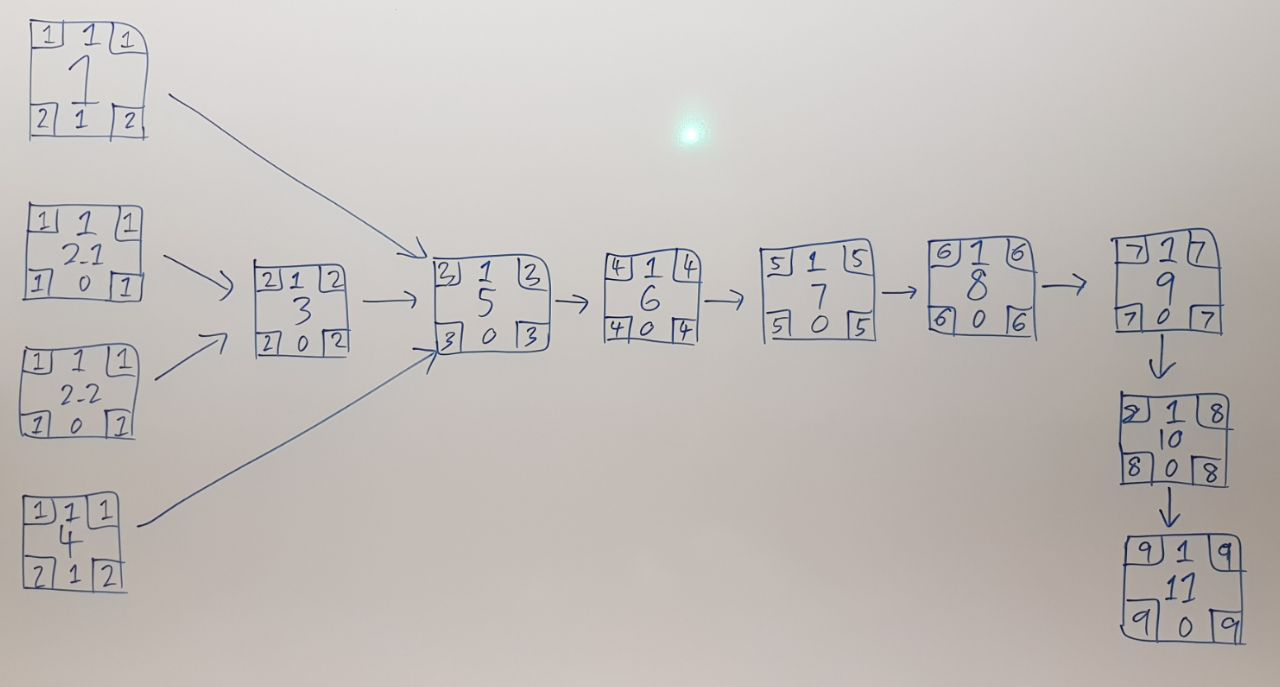 1 1 1
1
2 1 2
1 1 1
2-1
1 0 1
1 1 1
2-2
1 0 1
1 1 1
4
2 1 2
2 1 2
3
2 0 2
3 1 3
5
3 0 3
4 1 4
6
4 0 4
5 1 5
7
5 0 5
6 1 6
8
6 0 6
7 1 7
9
7 0 7
8 1 8
10
8 0 8
9 1 9
11
9 0 9